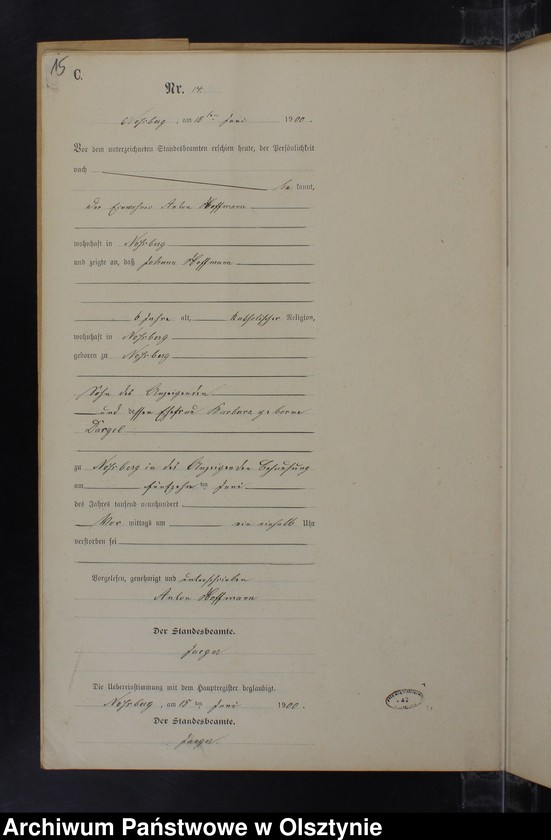 15
C.
Nr. 14.
am 15ten Juni 1900.
Vor dem unterzeichneten Standesbeamten erschien heute, der Persönlichkeit
nach
be kannt,
der Einwohner Anton Hoffmann
wohnhaft in Noßberg
und zeigte an, daß Johann Hoffmann
6 Jahre alt, katholischer Religion,
wohnhaft in Noßberg
geboren zu Noßberg
Sohn des Anzeigenden
und dessen Ehefrau Barbara geborene
Dargel
zu Noßberg in des Anzeigenden Behausung
am fünfzehnten Juni
des Jahres tausend neunhundert
Vor mittags um ein einhalb Uhr
verstorben sei
Vorgelesen, genehmigt und unterschrieben
Anton Hoffmann
Der Standesbeamte.
Jaeger
Die Uebereinstimmung mit dem Hauptregister beglaubigt.
Noßberg, am 15ten Juni 1900.
Der Standesbeamte.
Jaeger.
Archiwum Państwowe w Olsztynie